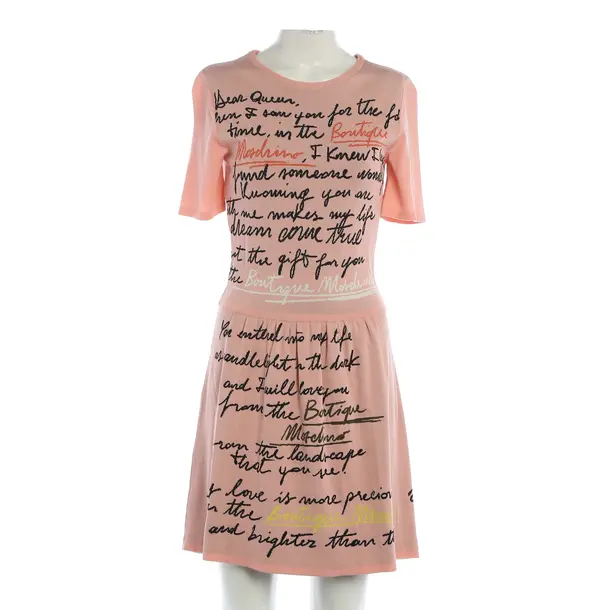 Dear Queen,
hen I saw you for the fo
time, in the Boutique
Moschino, I Knew I'
found someone wond
Knowing you are
th me makes my life
dream come true
ut the gift for you
the Boutique Moschino
You entered into my life
as candlelight in the dark
and I will love you
from the Boutique
Moschino
rom the landscape
that you see!
y love is more preciou
n the Boutique Mosch
and brighter than th